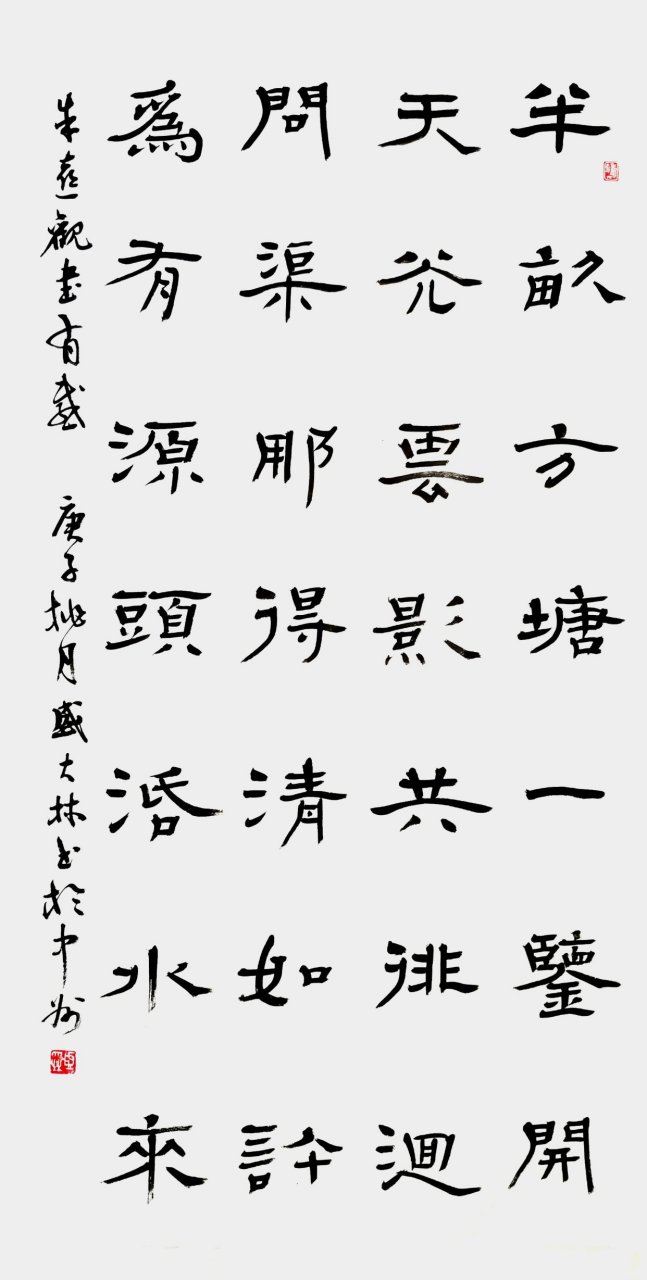 半畝方塘一鑒開
天光雲影共徘迴
問渠那得清如許
為有源頭活水來
朱熹觀書有感 庚子桃月盛大林书於中州